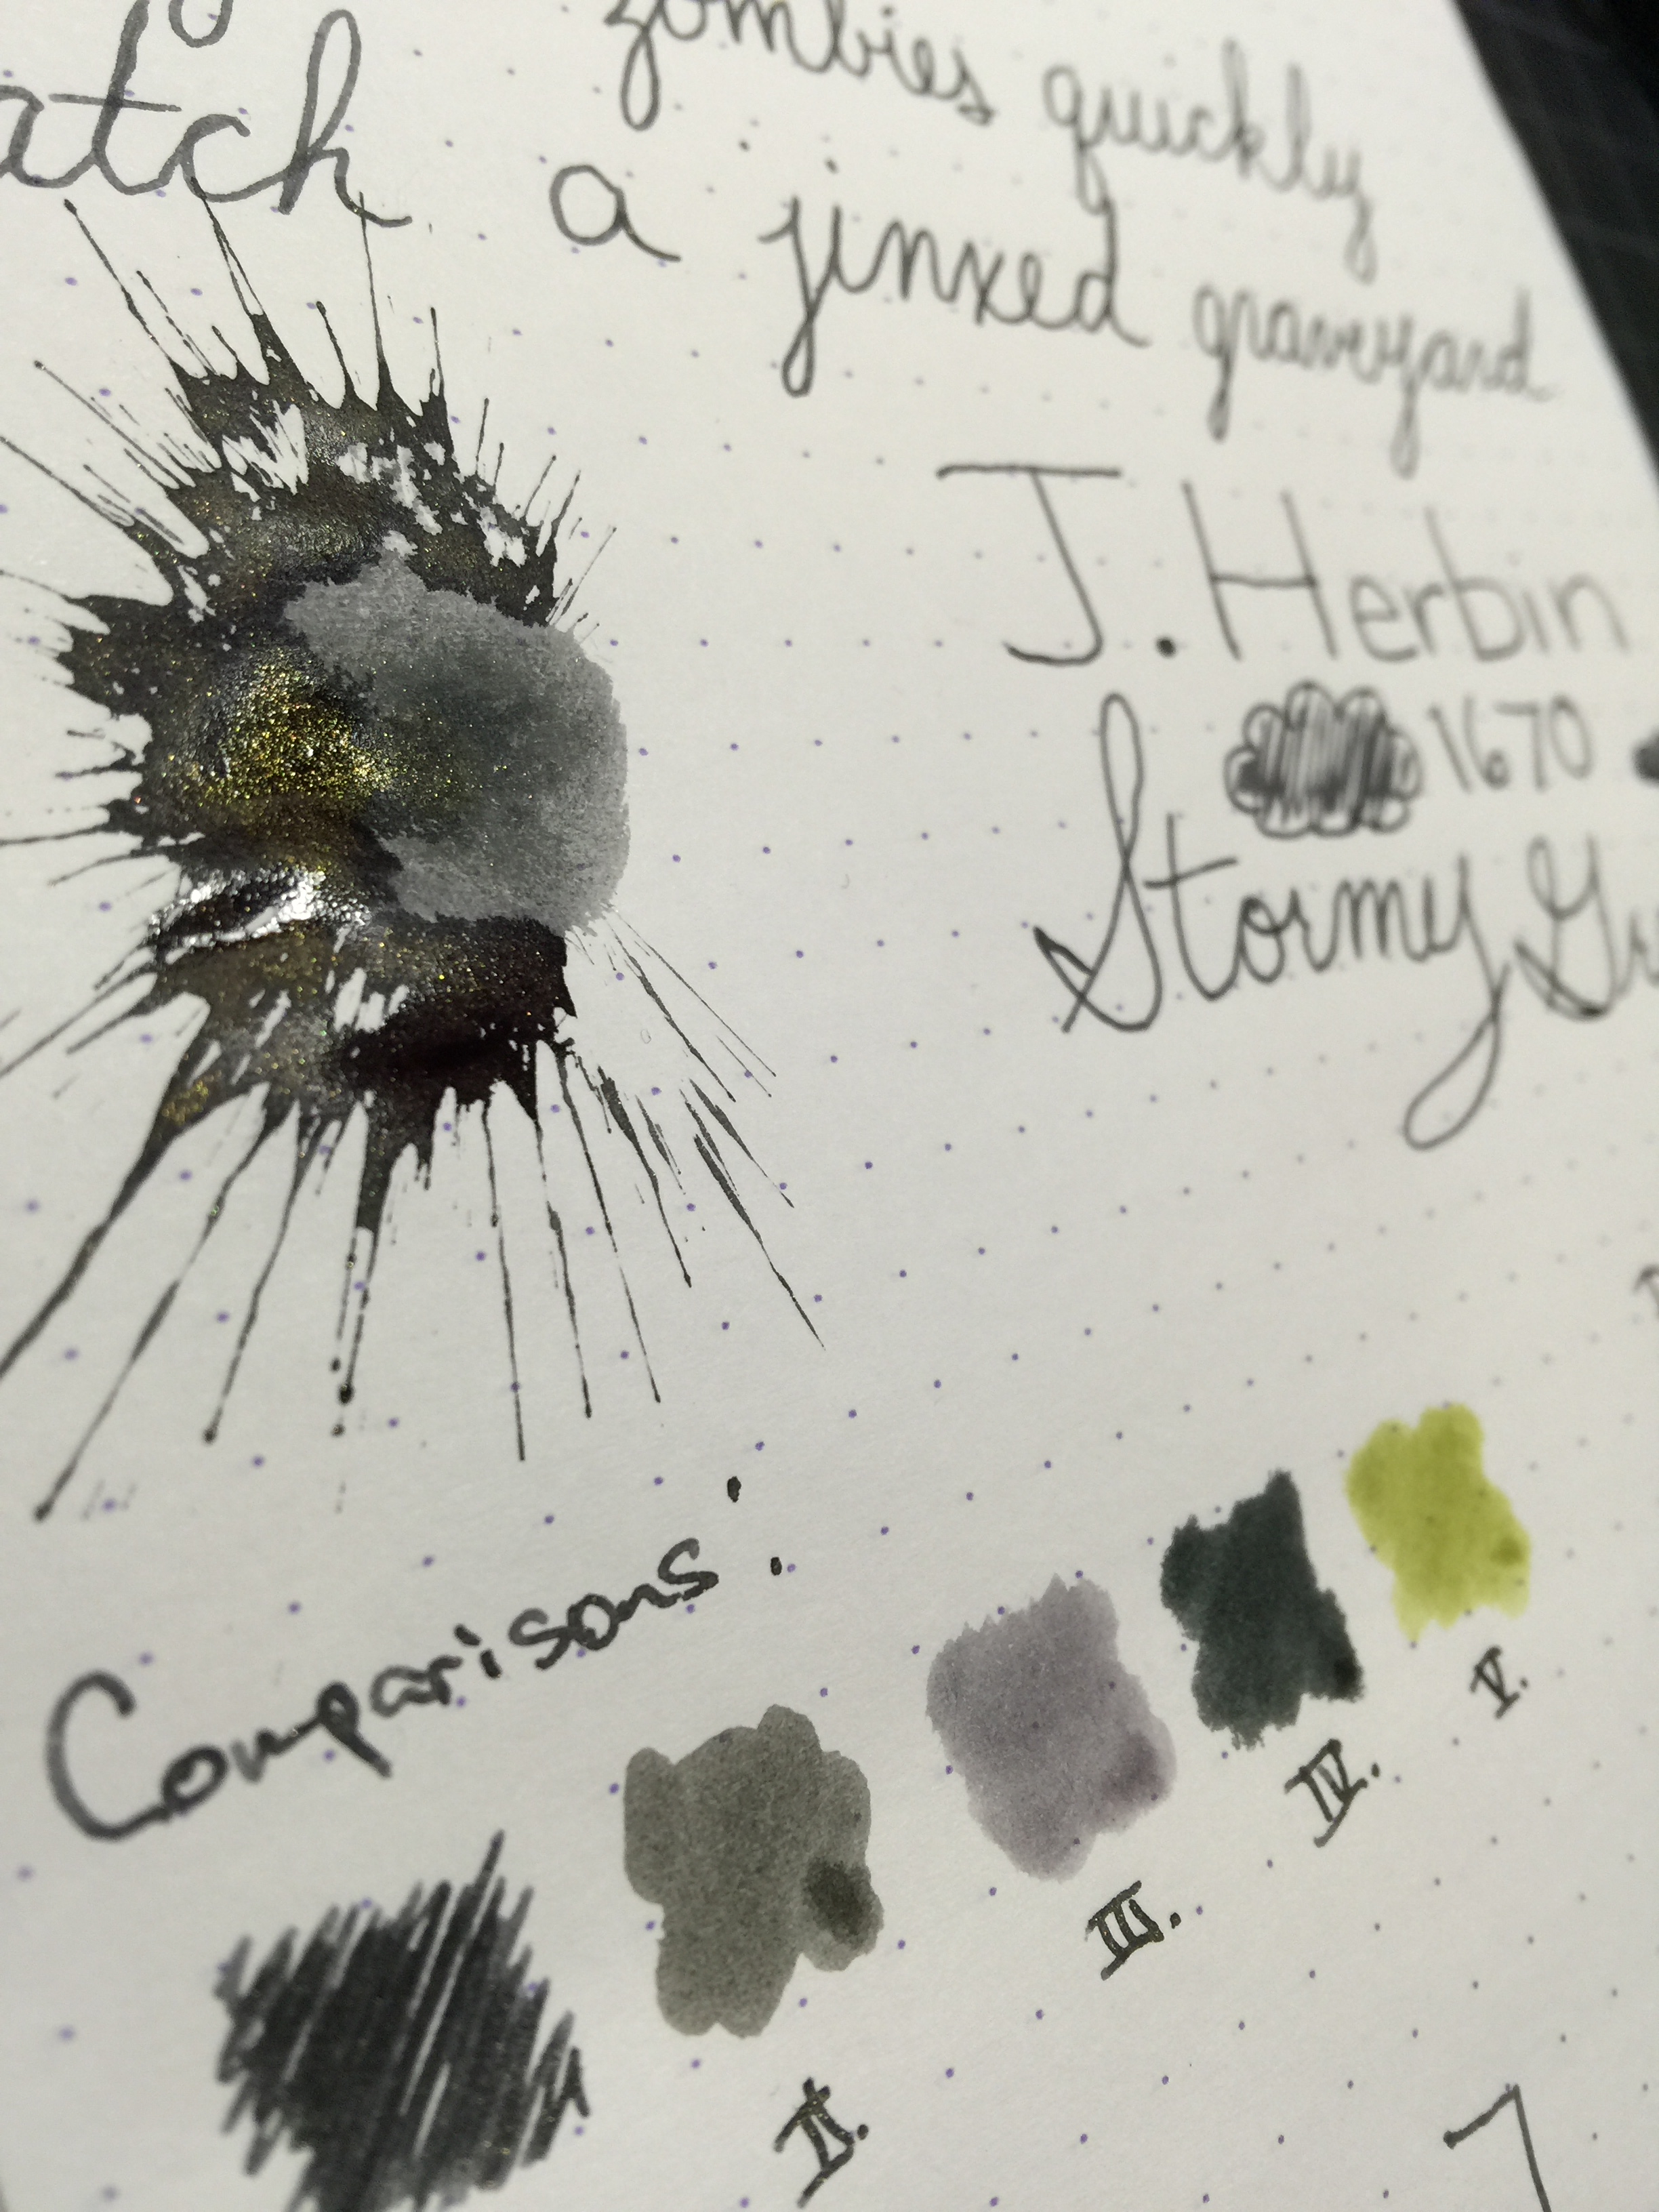 zombies quickly
a jinxed graveyard
J. Herbin
1670
Stormy
Comparisons:
II.
III.
IV.
V.
7